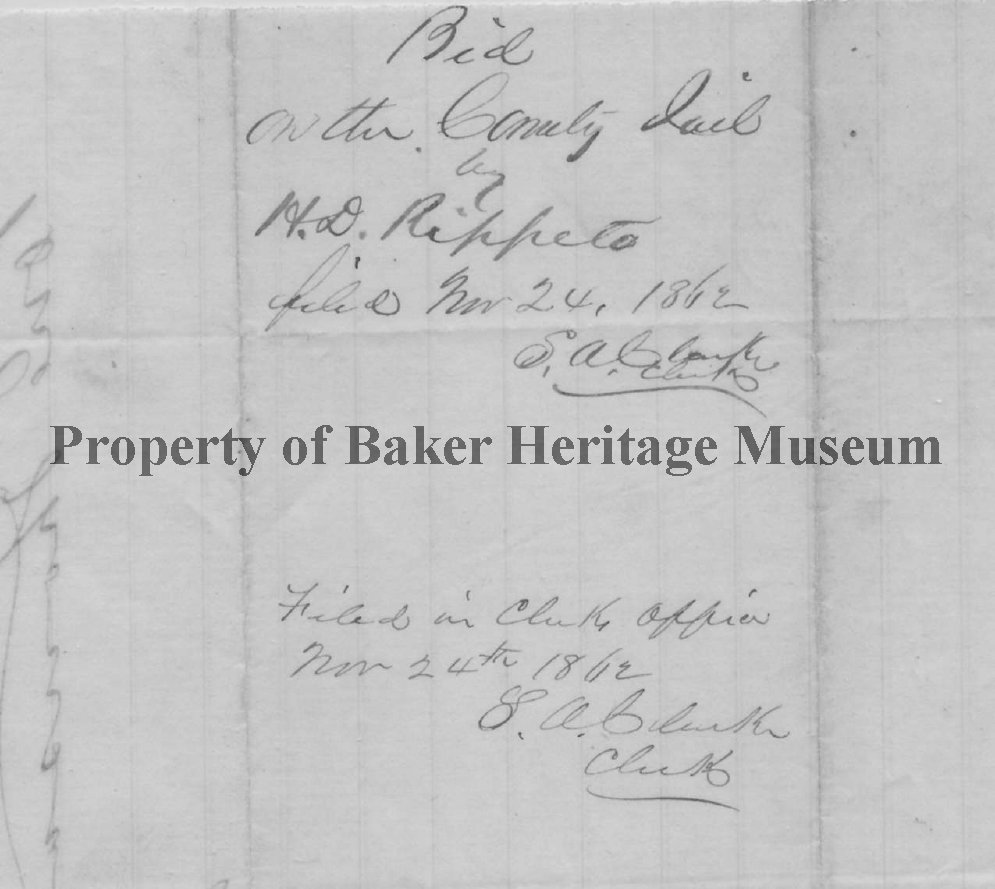 Bid
on the County Jail
by
H. D. Rippeto
filed Nov 24, 1862
S. A. Clarke
Clerk
Property of Baker Heritage Museum
Filed in Clerks Office
Nov 24th 1862
S. A. Clarke
Clerk